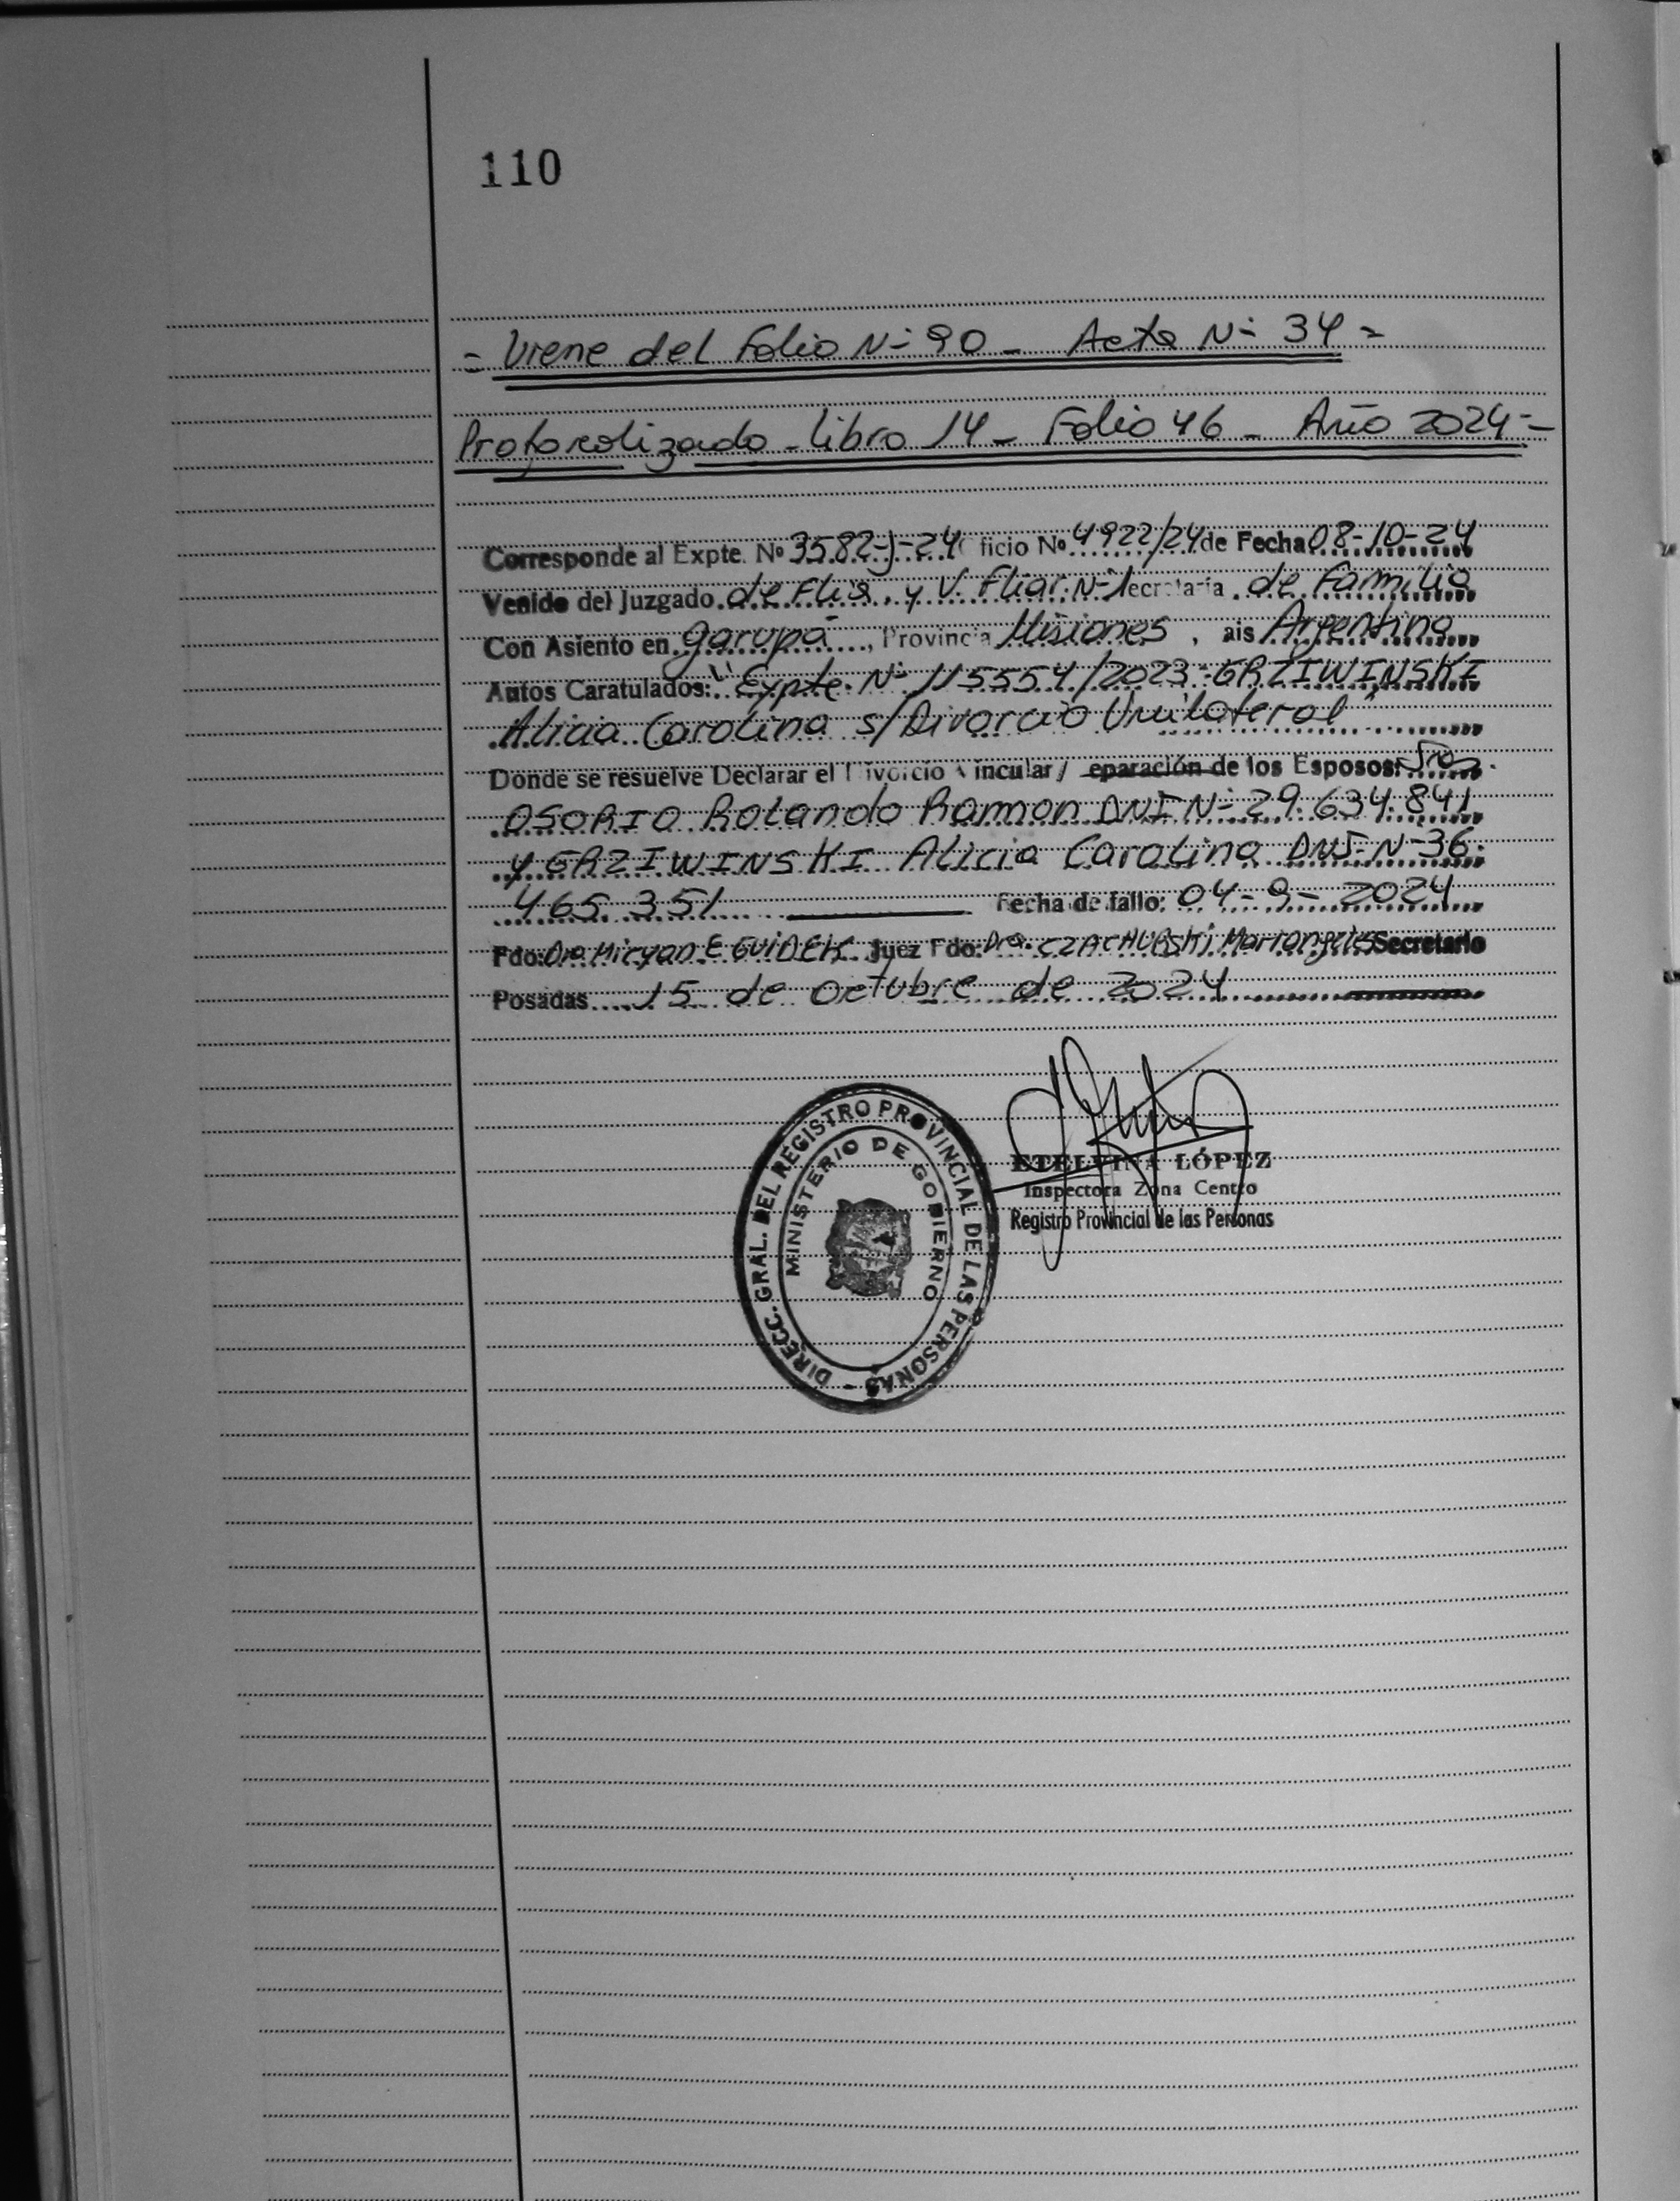 110
= Viene del Folio N- 90 - Acta N- 34 =
Protocolizado - Libro 14 - Folio 46 - Año 2024 =
Corresponde al Expte. Nº 3582-J-24 ficio Nº 4922/24 de Fecha 08-10-24
Venido del Juzgado de Flia. y V. Fliar. N-1 ecretaría de Familia
Con Asiento en Garupá, Provincia Misiones, ais Argentina
Autos Caratulados: "Expte. N- 115554/2023 - GRZIWINSKI
Alicia Carolina s/Divorcio Unilateral"
Donde se resuelve Declarar el Divorcio Vincular / eparación de los Esposos:
OSORIO Rolando Ramon DNI N- 29.634.841
y GRZIWINSKI Alicia Carolina DNI N- 36.
465.351 Fecha de fallo: 04-9-2024
Fdo: Dra Miryan E GUIDEK Juez Fdo: Dra. CZACHURSKI Mariangeles Secretario
Posadas 15 de Octubre de 2024
DIRECC. GRAL. DEL REGISTRO PROVINCIAL DE LAS PERSONAS -
MINISTERIO DE GOBIERNO
ETELVINA LÓPEZ
Inspectora Zona Centro
Registro Provincial de las Personas